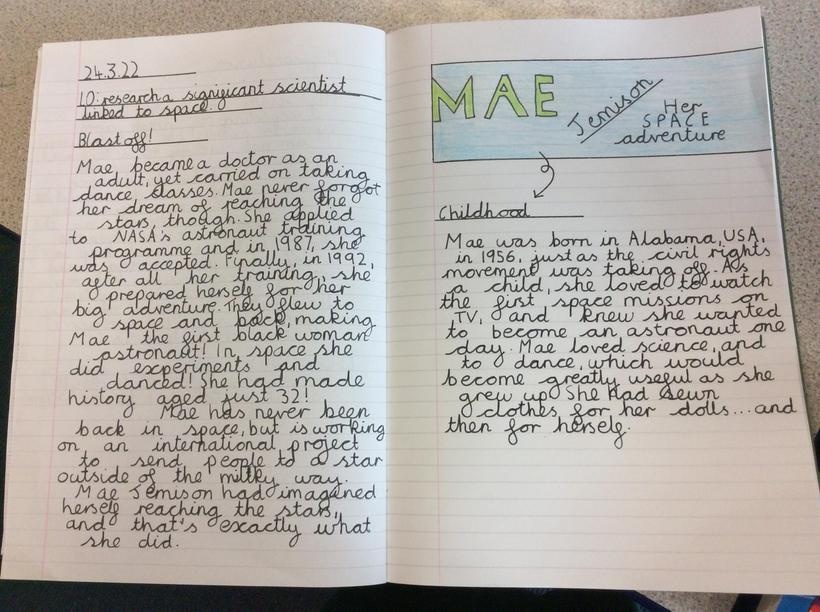 24.3.22
LO: research a significant scientist
linked to space.
Blast off!
Mae became a doctor as an
adult, yet carried on taking
dance classes. Mae never forgot
her dream of reaching the
stars, though. She applied
to NASA's astronaut training
programme and in 1987, she
was accepted. Finally, in 1992,
after all her training, she
prepared herself for her
big adventure. They flew to
space and back, making
Mae the first black woman
astronaut! In space she
did experiments and
danced! She had made
history aged just 32!
Mae has never been
back in space, but is working
on an international project
to send people to a star
outside of the milky way.
Mae Jemison had imagined
herself reaching the stars,
and that's exactly what
she did.
MAE
Jemison
Her
SPACE
adventure
Childhood
Mae was born in Alabama, USA,
in 1956, just as the civil rights
movement was taking off. As
a child, she loved to watch
the first space missions on
TV, and knew she wanted
to become an astronaut one
day. Mae loved science, and
to dance, which would
become greatly useful as she
grew up. She had sewn
clothes for her dolls...and
then for herself.